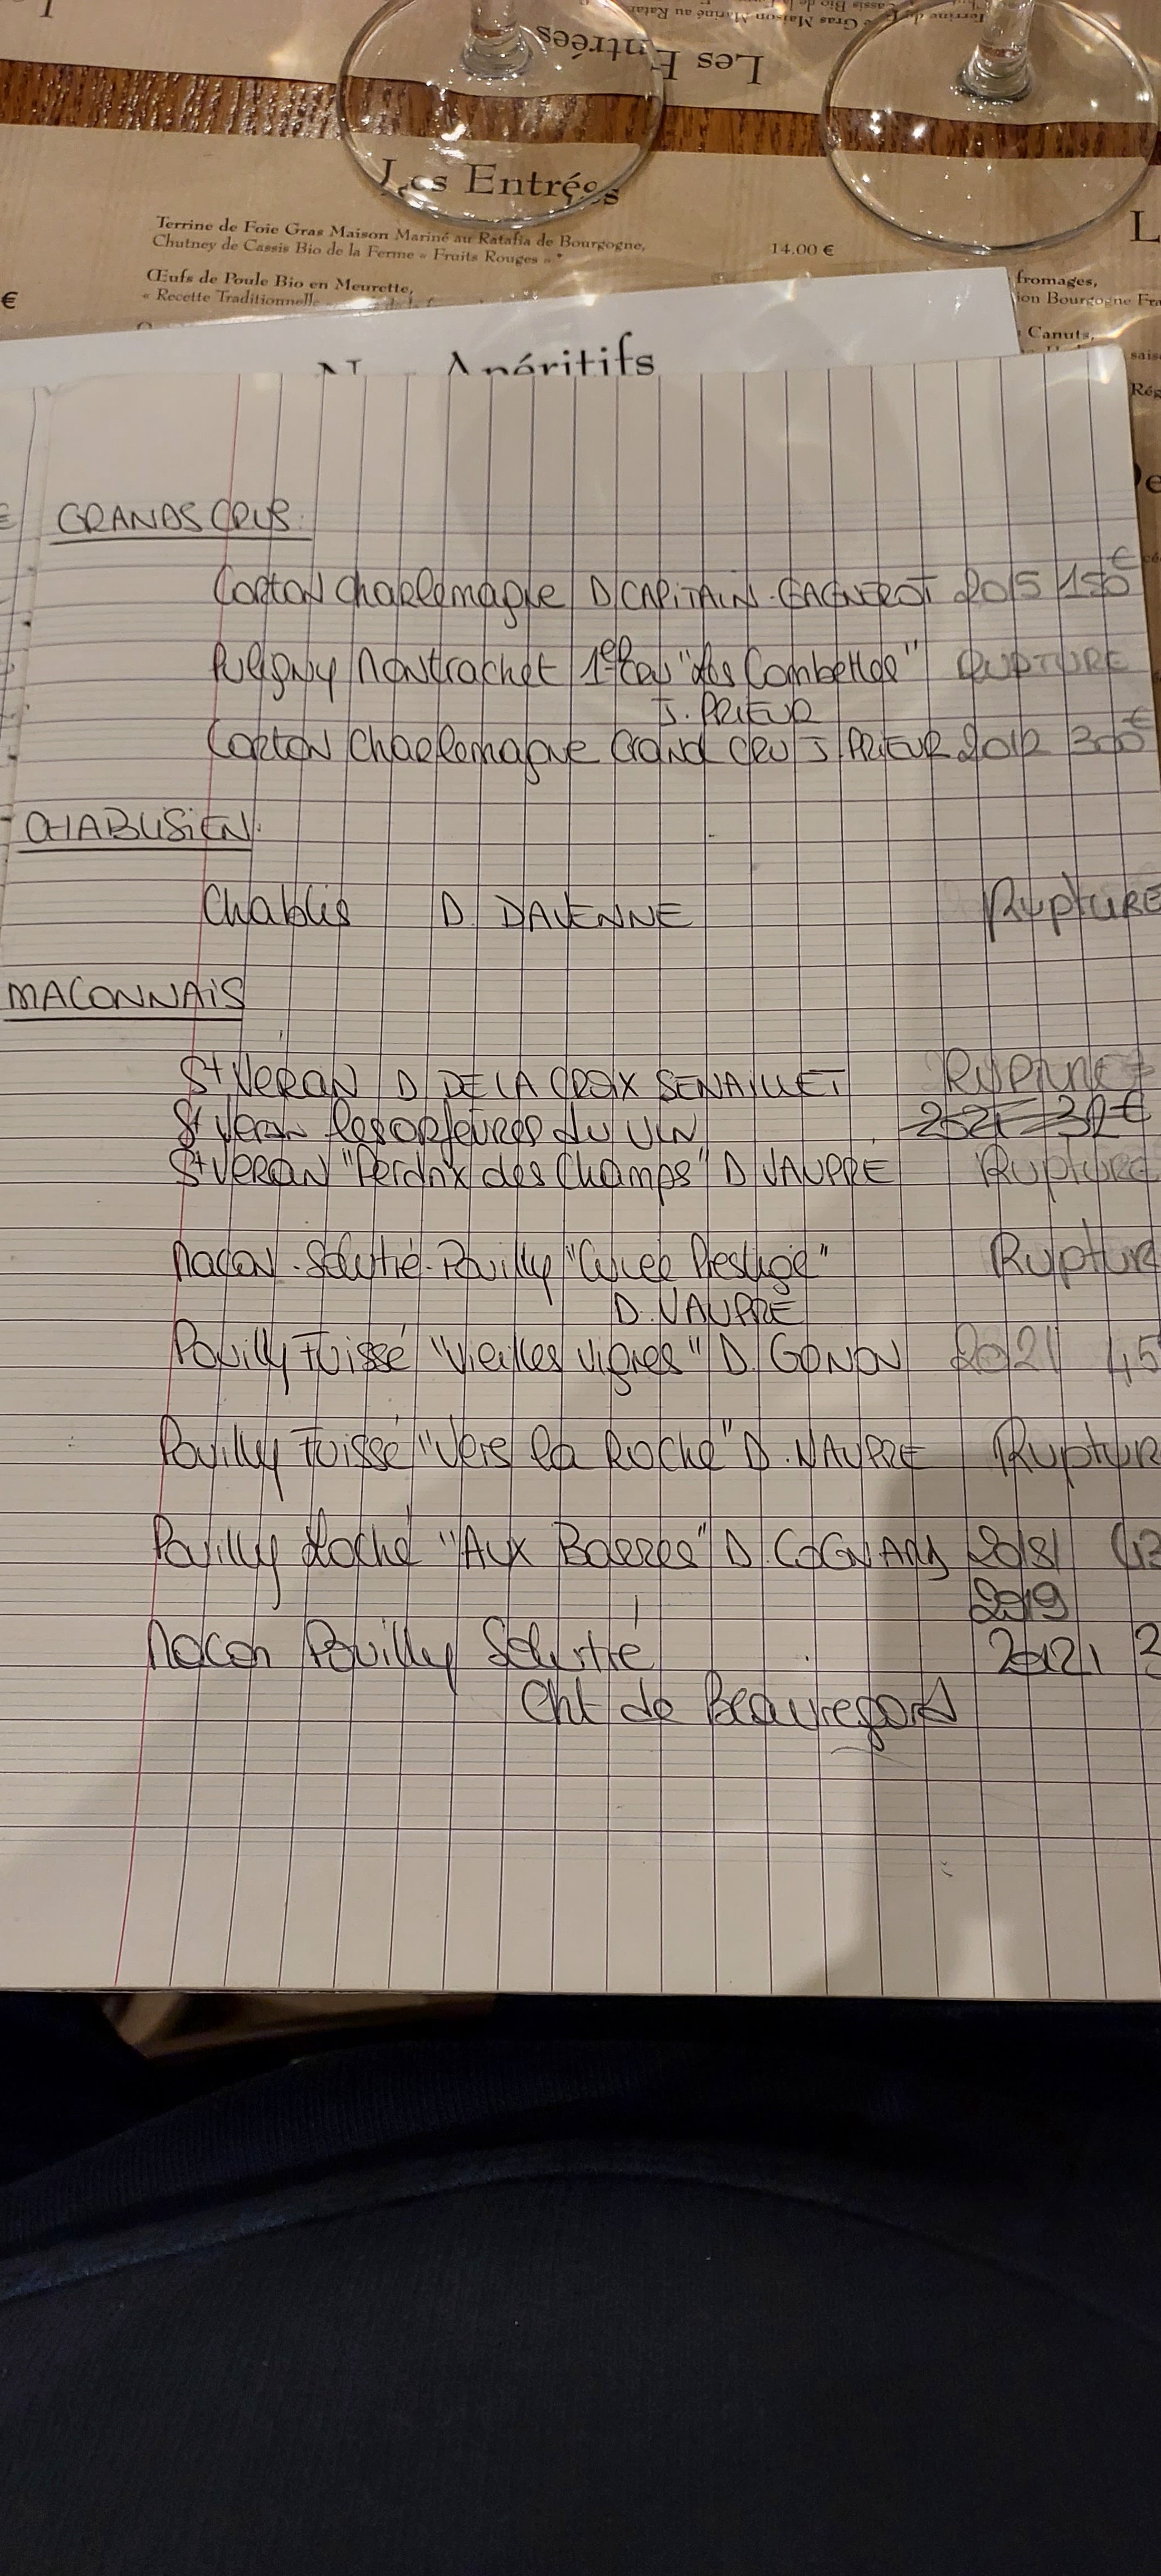 Les Entrées
Les Entrées
Terrine de Foie Gras Maison Mariné au Ratafia de Bourgogne,
Chutney de Cassis Bio de la Ferme « Fruits Rouges » * 14.00 €
Œufs de Poule Bio en Meurette,
« Recette Traditionnelle
€
fromages,
ion Bourgogne Fra
Canuts,
Apéritifs
GRANDS CRUS:
Corton Charlemagne D CAPITAIN-GAGNEROT 2015 150€
Puligny Montrachet 1er Cru "Les Combettes" RUPTURE
J. PRIEUR
Corton Charlemagne Grand CRU J PRIEUR 2012 300€
CHABLISIEN:
Chablis D. DAVENNE RuptuRE
MACONNAIS
St VERAN D DE LA CROIX SENAILLET Rupture
St Veran les orfeuvres du VIN 2021 32€
St VERAN "Perdrix des Champs" D VAUPRE Rupture
Macon-Solutré-Pouilly "Cuvée Prestige" Ruptur
D. VAUPRE
Pouilly Fuissé "Vieilles vignes" D. GONON 2021 45
Pouilly Fuissé "Vers la Roche" D. VAUPRE Ruptur
Pouilly Loché "Aux Barres" D. COGNARD 2018
2019
Macon Pouilly Solutré 2021
Cht de Beauregard